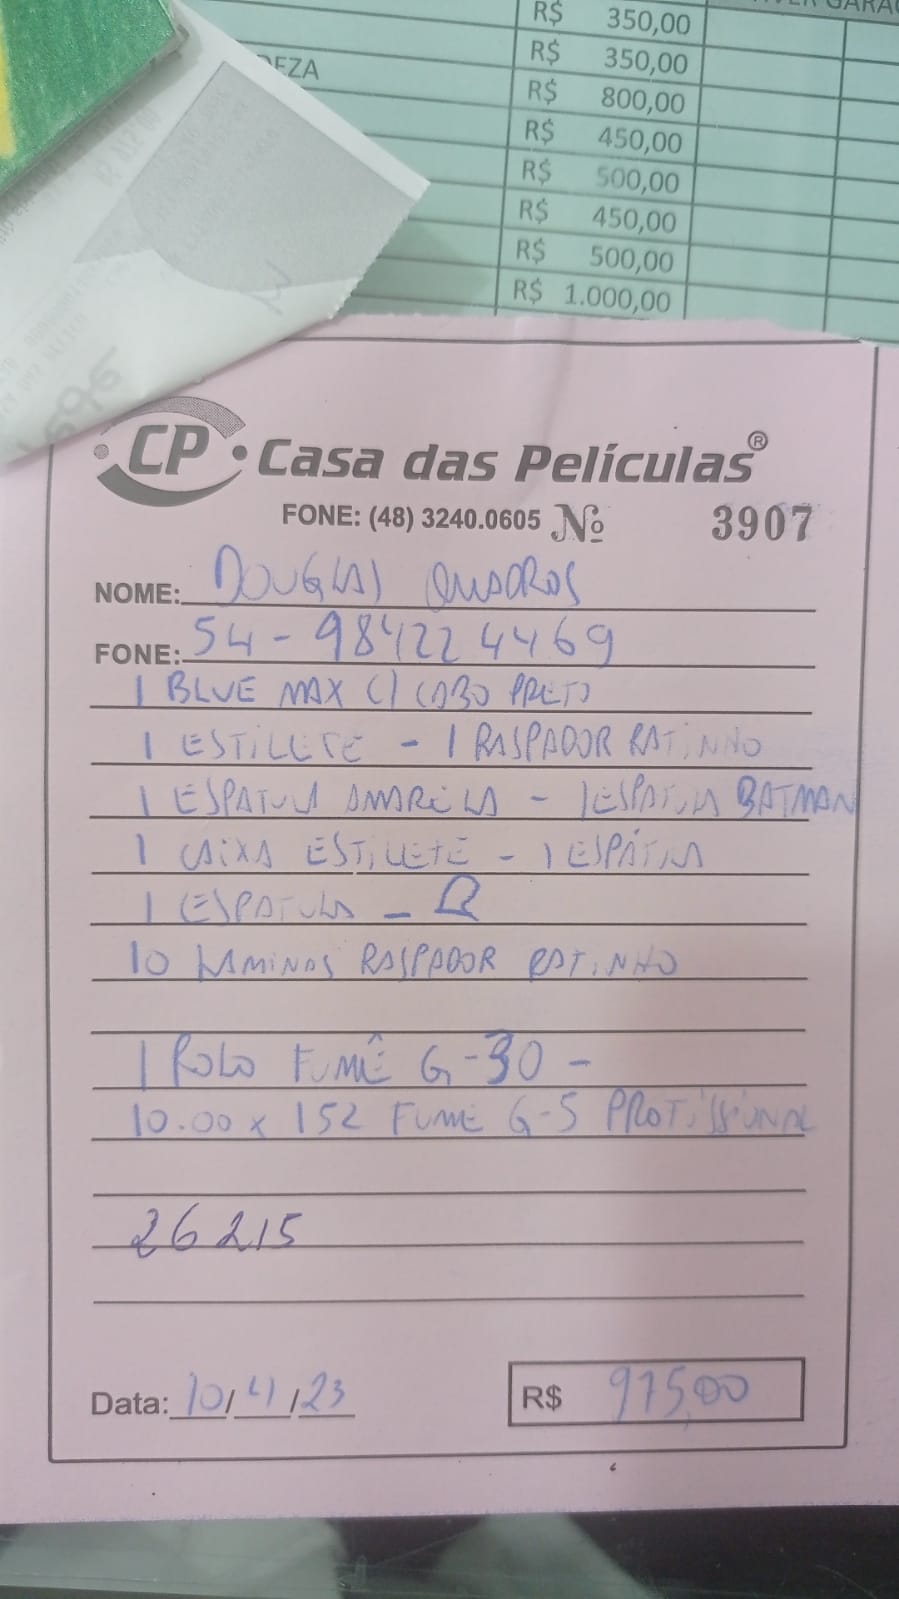 R$ 350,00
EZA R$ 350,00
R$ 800,00
R$ 450,00
R$ 500,00
R$ 450,00
R$ 500,00
R$ 1.000,00
CP Casa das Películas®
FONE: (48) 3240.0605 Nº 3907
NOME: DOUGLAS QUADROS
FONE: 54-984224469
1 BLUE MAX C/ CABO PRETO
1 ESTILETE - 1 RASPADOR RATINHO
1 ESPATULA AMARELA - 1 ESPATULA BATMAN
1 CAIXA ESTILETE - 1 ESPÁTULA
1 ESPATULA -
10 LAMINAS RASPADOR RATINHO
1 ROLO FUMÊ G-30 -
10.00 x 152 FUME G-5 PROFISSIONAL
26215
Data: 10/4/23 R$ 975,00